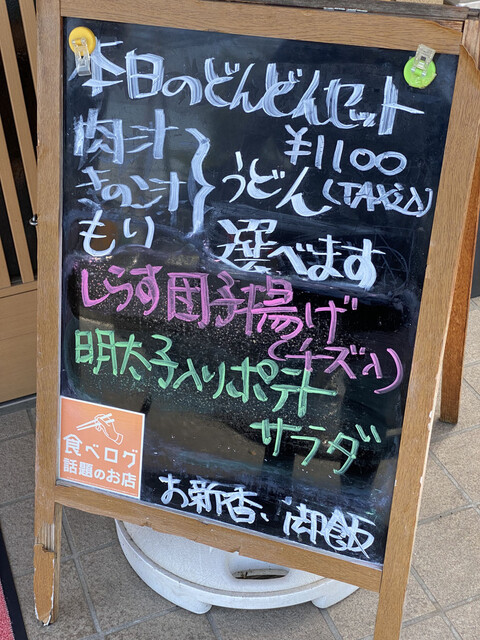 本日のどんどんセット
¥1100
肉汁
きのこ汁
もり
うどん(TAX込)
選べます
しらす団子揚げ
(チーズ入り)
明太子入りポテト
サラダ
食べログ
話題のお店
お新香、御飯